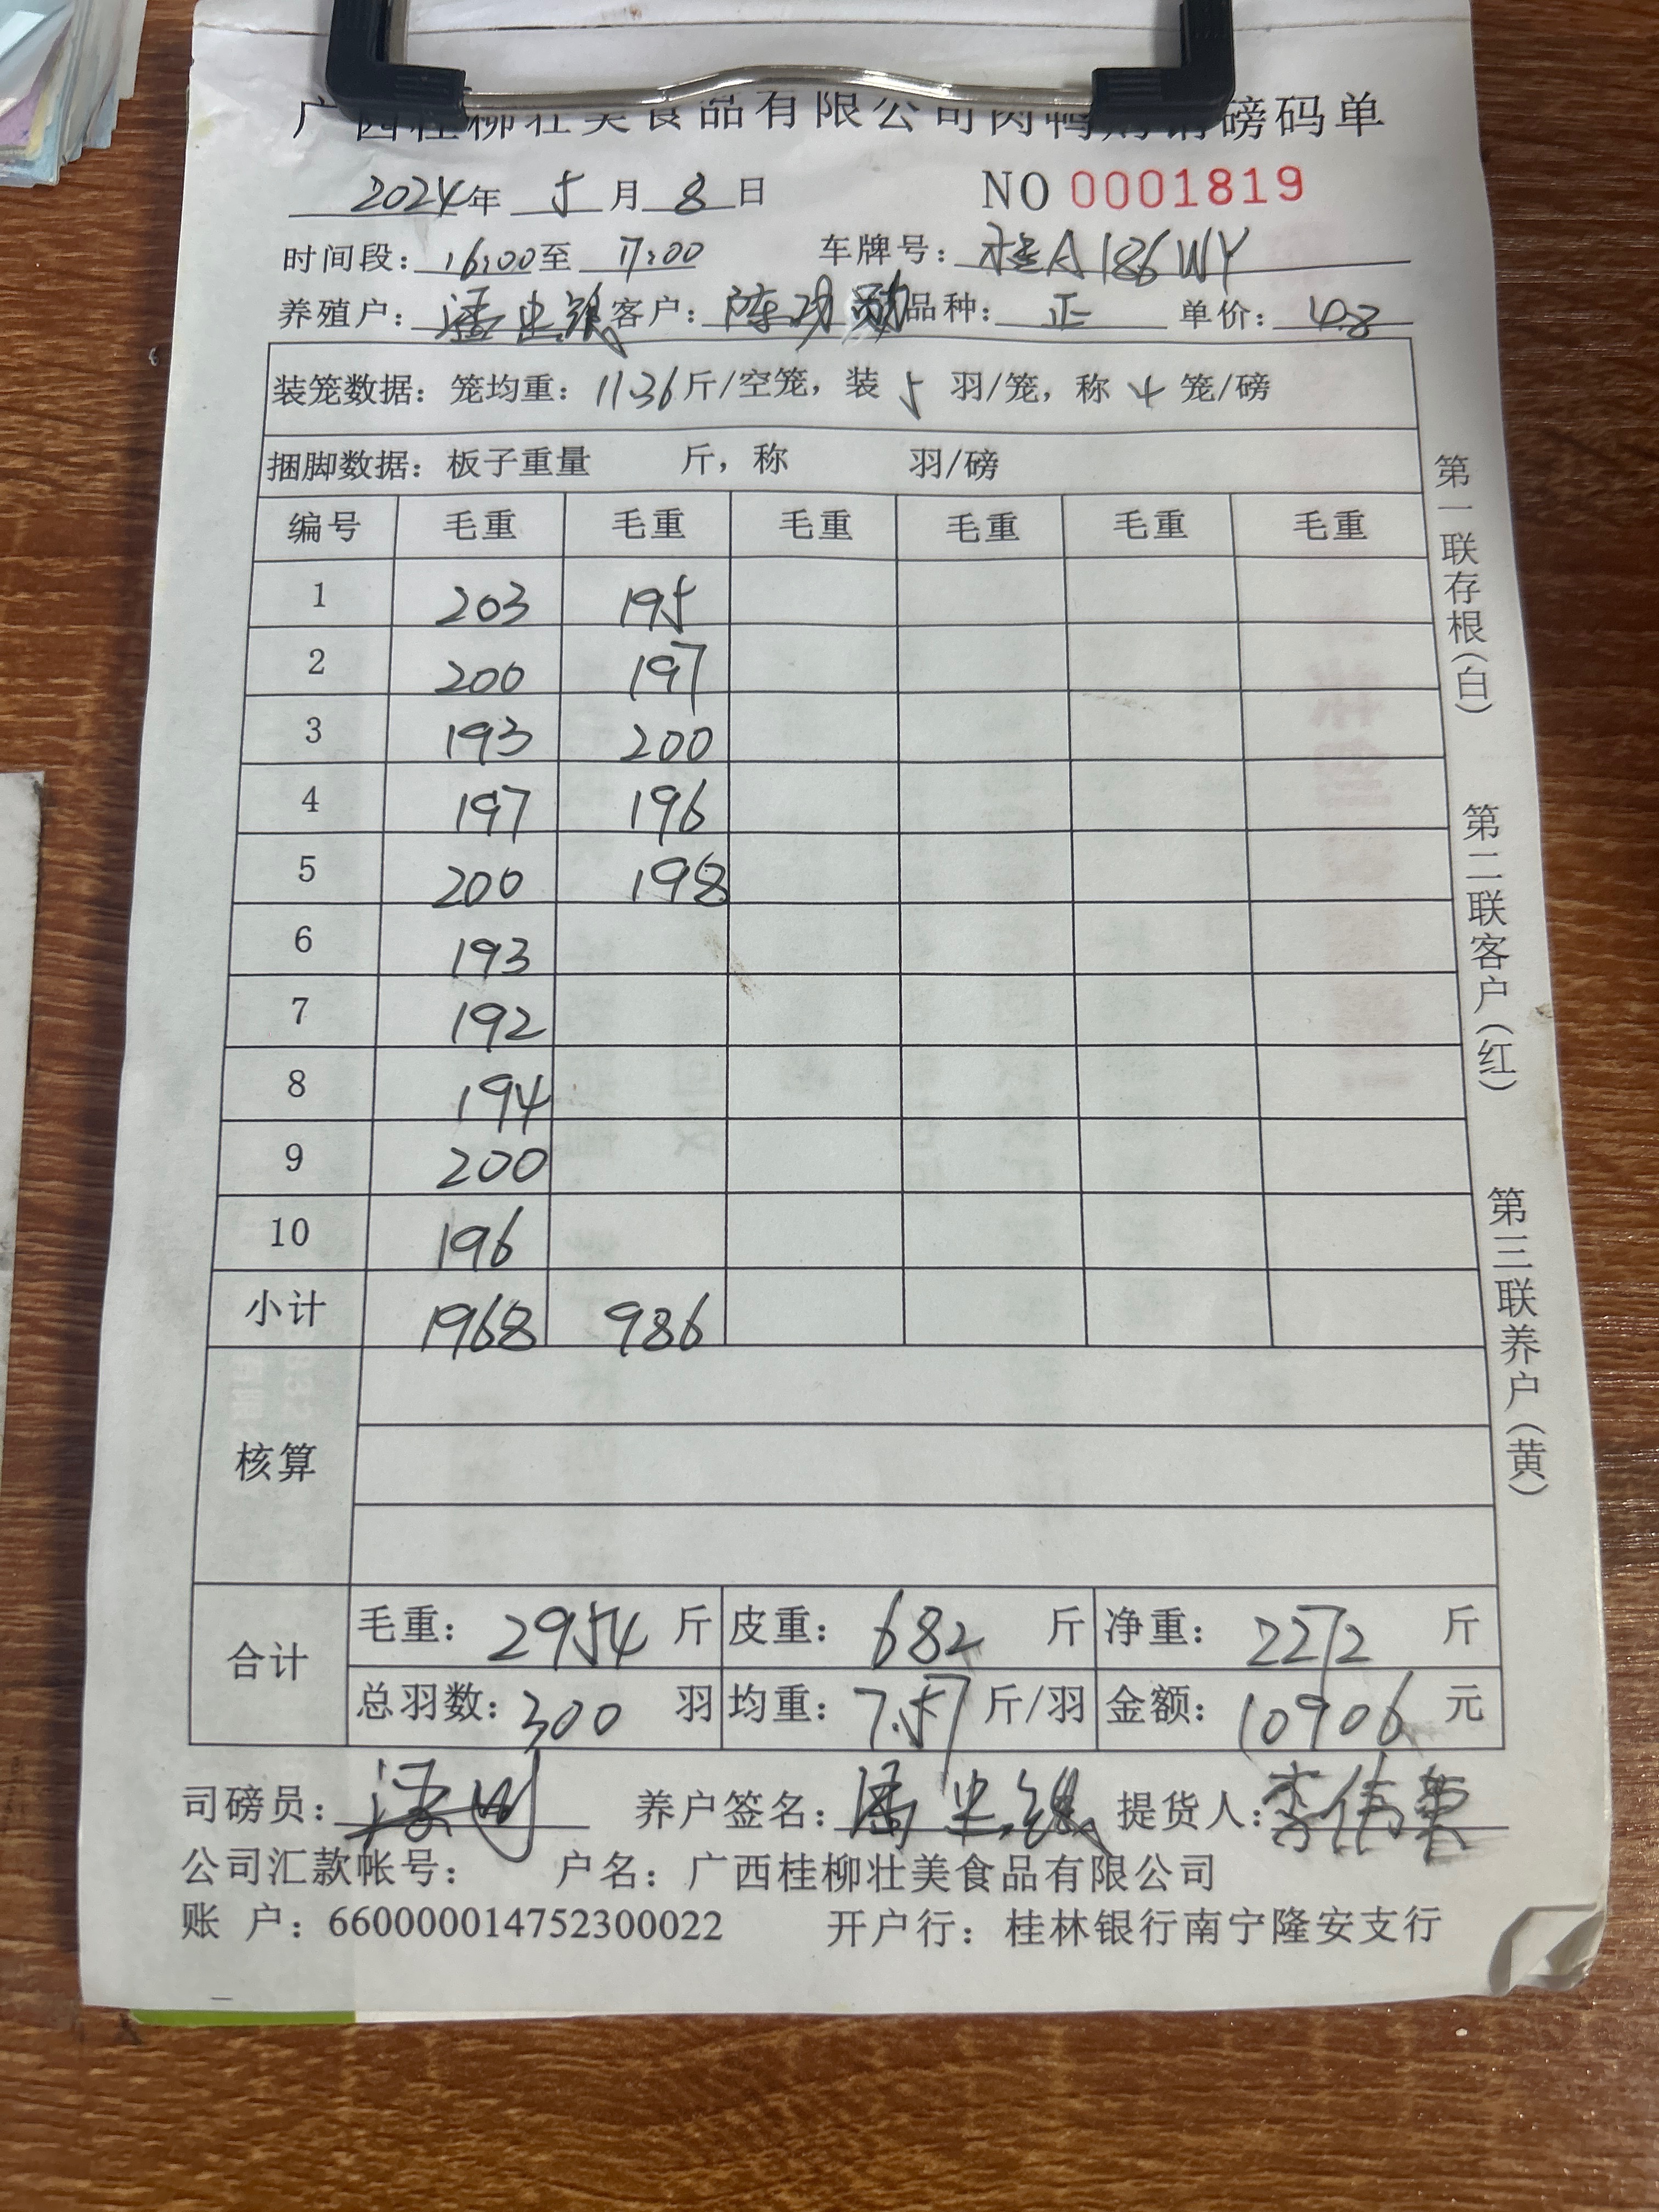 广西桂柳壮美食品有限公司肉鸭购销磅码单
2024年 5 月 8 日 NO 0001819
时间段: 16:00至 17:00 车牌号: 桂A186WY
养殖户: 潘 客户: 陈功勋 品种: 正 单价: 4.8
装笼数据: 笼均重: 11.36斤/空笼, 装 5 羽/笼, 称 4 笼/磅
捆脚数据: 板子重量 斤, 称 羽/磅
编号 毛重 毛重 毛重 毛重 毛重 毛重
1 203 195
2 200 197
3 193 200
4 197 196
5 200 198
6 193
7 192
8 194
9 200
10 196
小计 1968 986
核算
合计 毛重: 2954 斤 皮重: 682 斤 净重: 2272 斤
总羽数: 300 羽 均重: 7.57 斤/羽 金额: 10906 元
司磅员: 养户签名: 潘 提货人: 李伟荣
公司汇款帐号: 户名: 广西桂柳壮美食品有限公司
账 户: 660000014752300022 开户行: 桂林银行南宁隆安支行
第一联存根(白)
第二联客户(红)
第三联养户(黄)